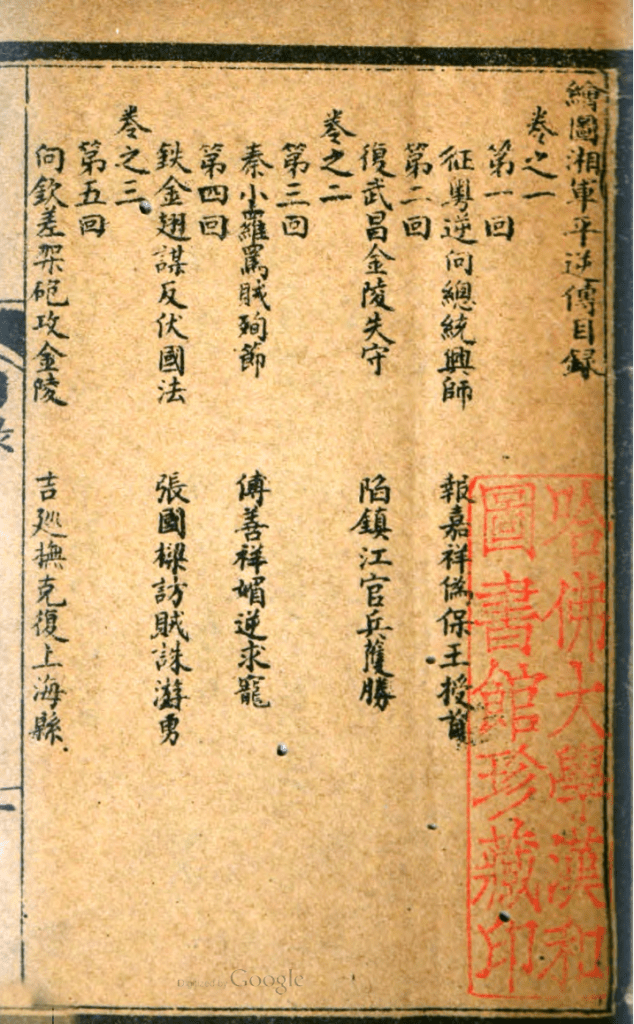 繪圖湘軍平逆傳目録
卷之一
第一回
征粵逆向總統興師　報嘉祥僞保王授首
第二回
復武昌金陵失守　陷鎮江官兵獲勝
卷之二
第三回
秦小羅罵賊殉節　傅善祥媚逆求寵
第四回
鉄金翅謀反伏國法　張國樑訪賊誅游勇
卷之三
第五回
向欽差架砲攻金陵　吉廵撫克復上海縣
哈佛大學漢和
圖書館珍藏印
Google